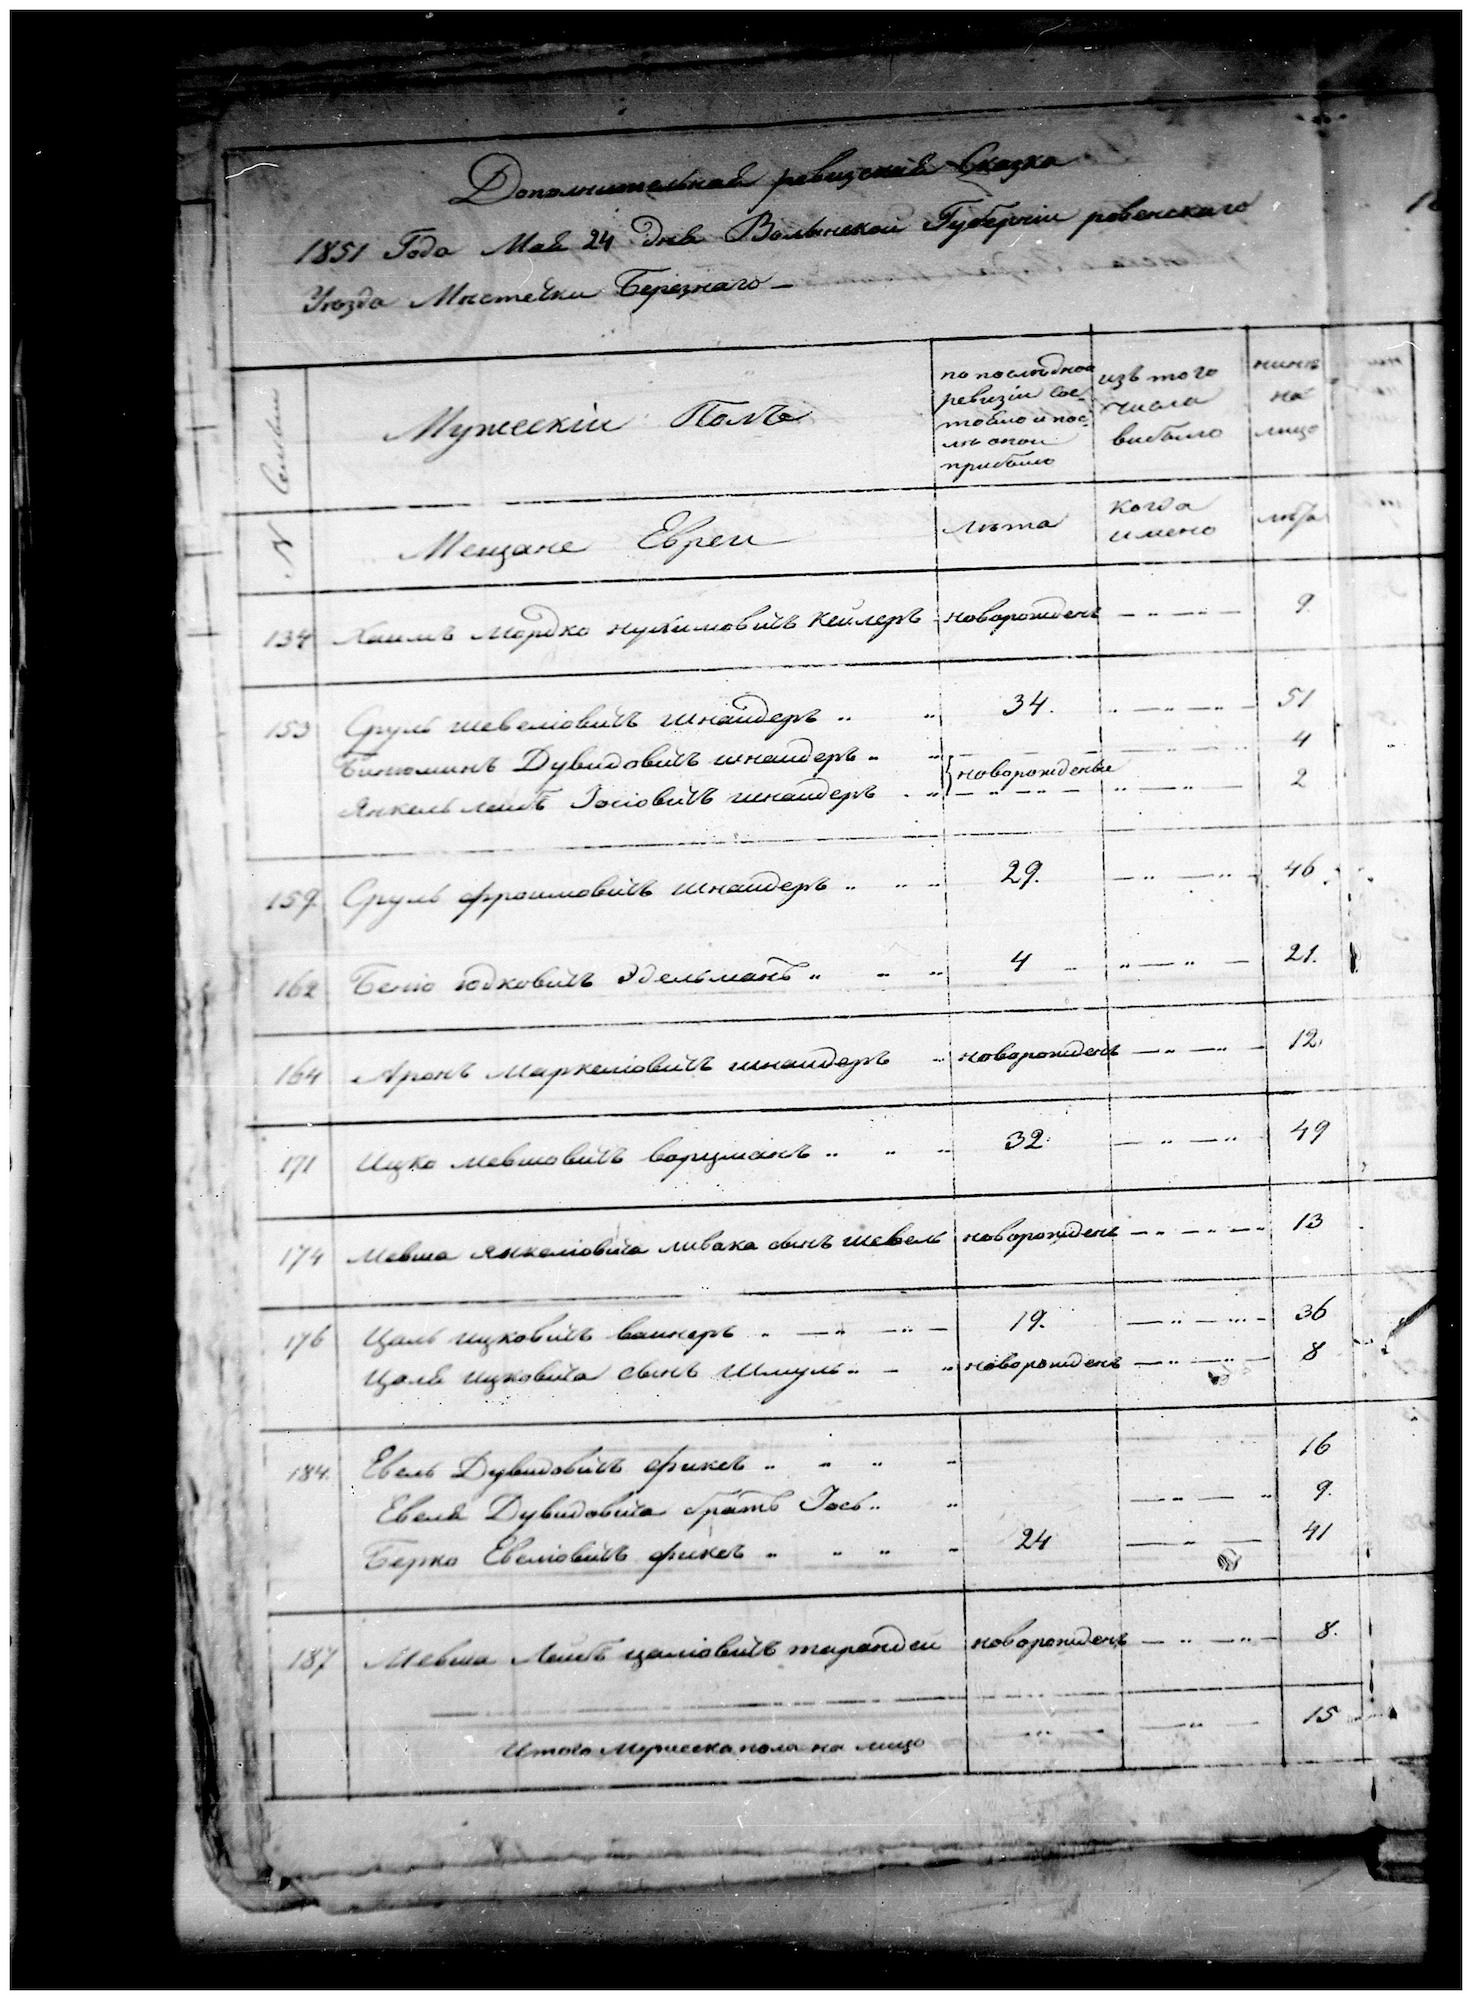 Дополнительная ревизская Сказка
1851 Года Мая 24 Дня Волынской Губерніи ровенского
Уезда Местечки Березнаго
N Семьи
Мужескій Полъ
по последной ревизіи состояло и после оной прибыло
изъ того числа выбыло
нине на лицо
Мещане Евреи
лета
когда имено
лета
134 Хаимъ Мордко нухимовичъ кейлеръ новорожденъ 9
153 Сруль шевеліовичъ шнайдеръ 34. 51
Бинюминъ Дувидовичъ шнайдеръ 4
новорожденые
Янкель лейбъ Іосіовичъ шнайдеръ 2
159. Сруль фроимовичъ шнайдеръ 29. 46
162 Беніо юдковичъ Эдельманъ 4 21.
164 Аронъ Маркеліовичъ шнайдеръ новорожденъ 12
171 Ицко мевшовичъ ворцманъ 32 49
174 Мевша Янкеліовича ливака сынъ шевель новорожденъ 13
176 Цаль ицковичъ вайнеръ 19. 36
Цаля ицковича сынъ Шмуль новорожденъ 8
184. Евель Дувидовичъ фиксъ 16
Евеля Дувидовича братъ Іось 9.
Берко Евеліовичъ фиксъ 24 41
187 Мевша Лейбъ цаліовичъ тарандей новорожденъ 8.
Итого Мужеска пола на лицо 15